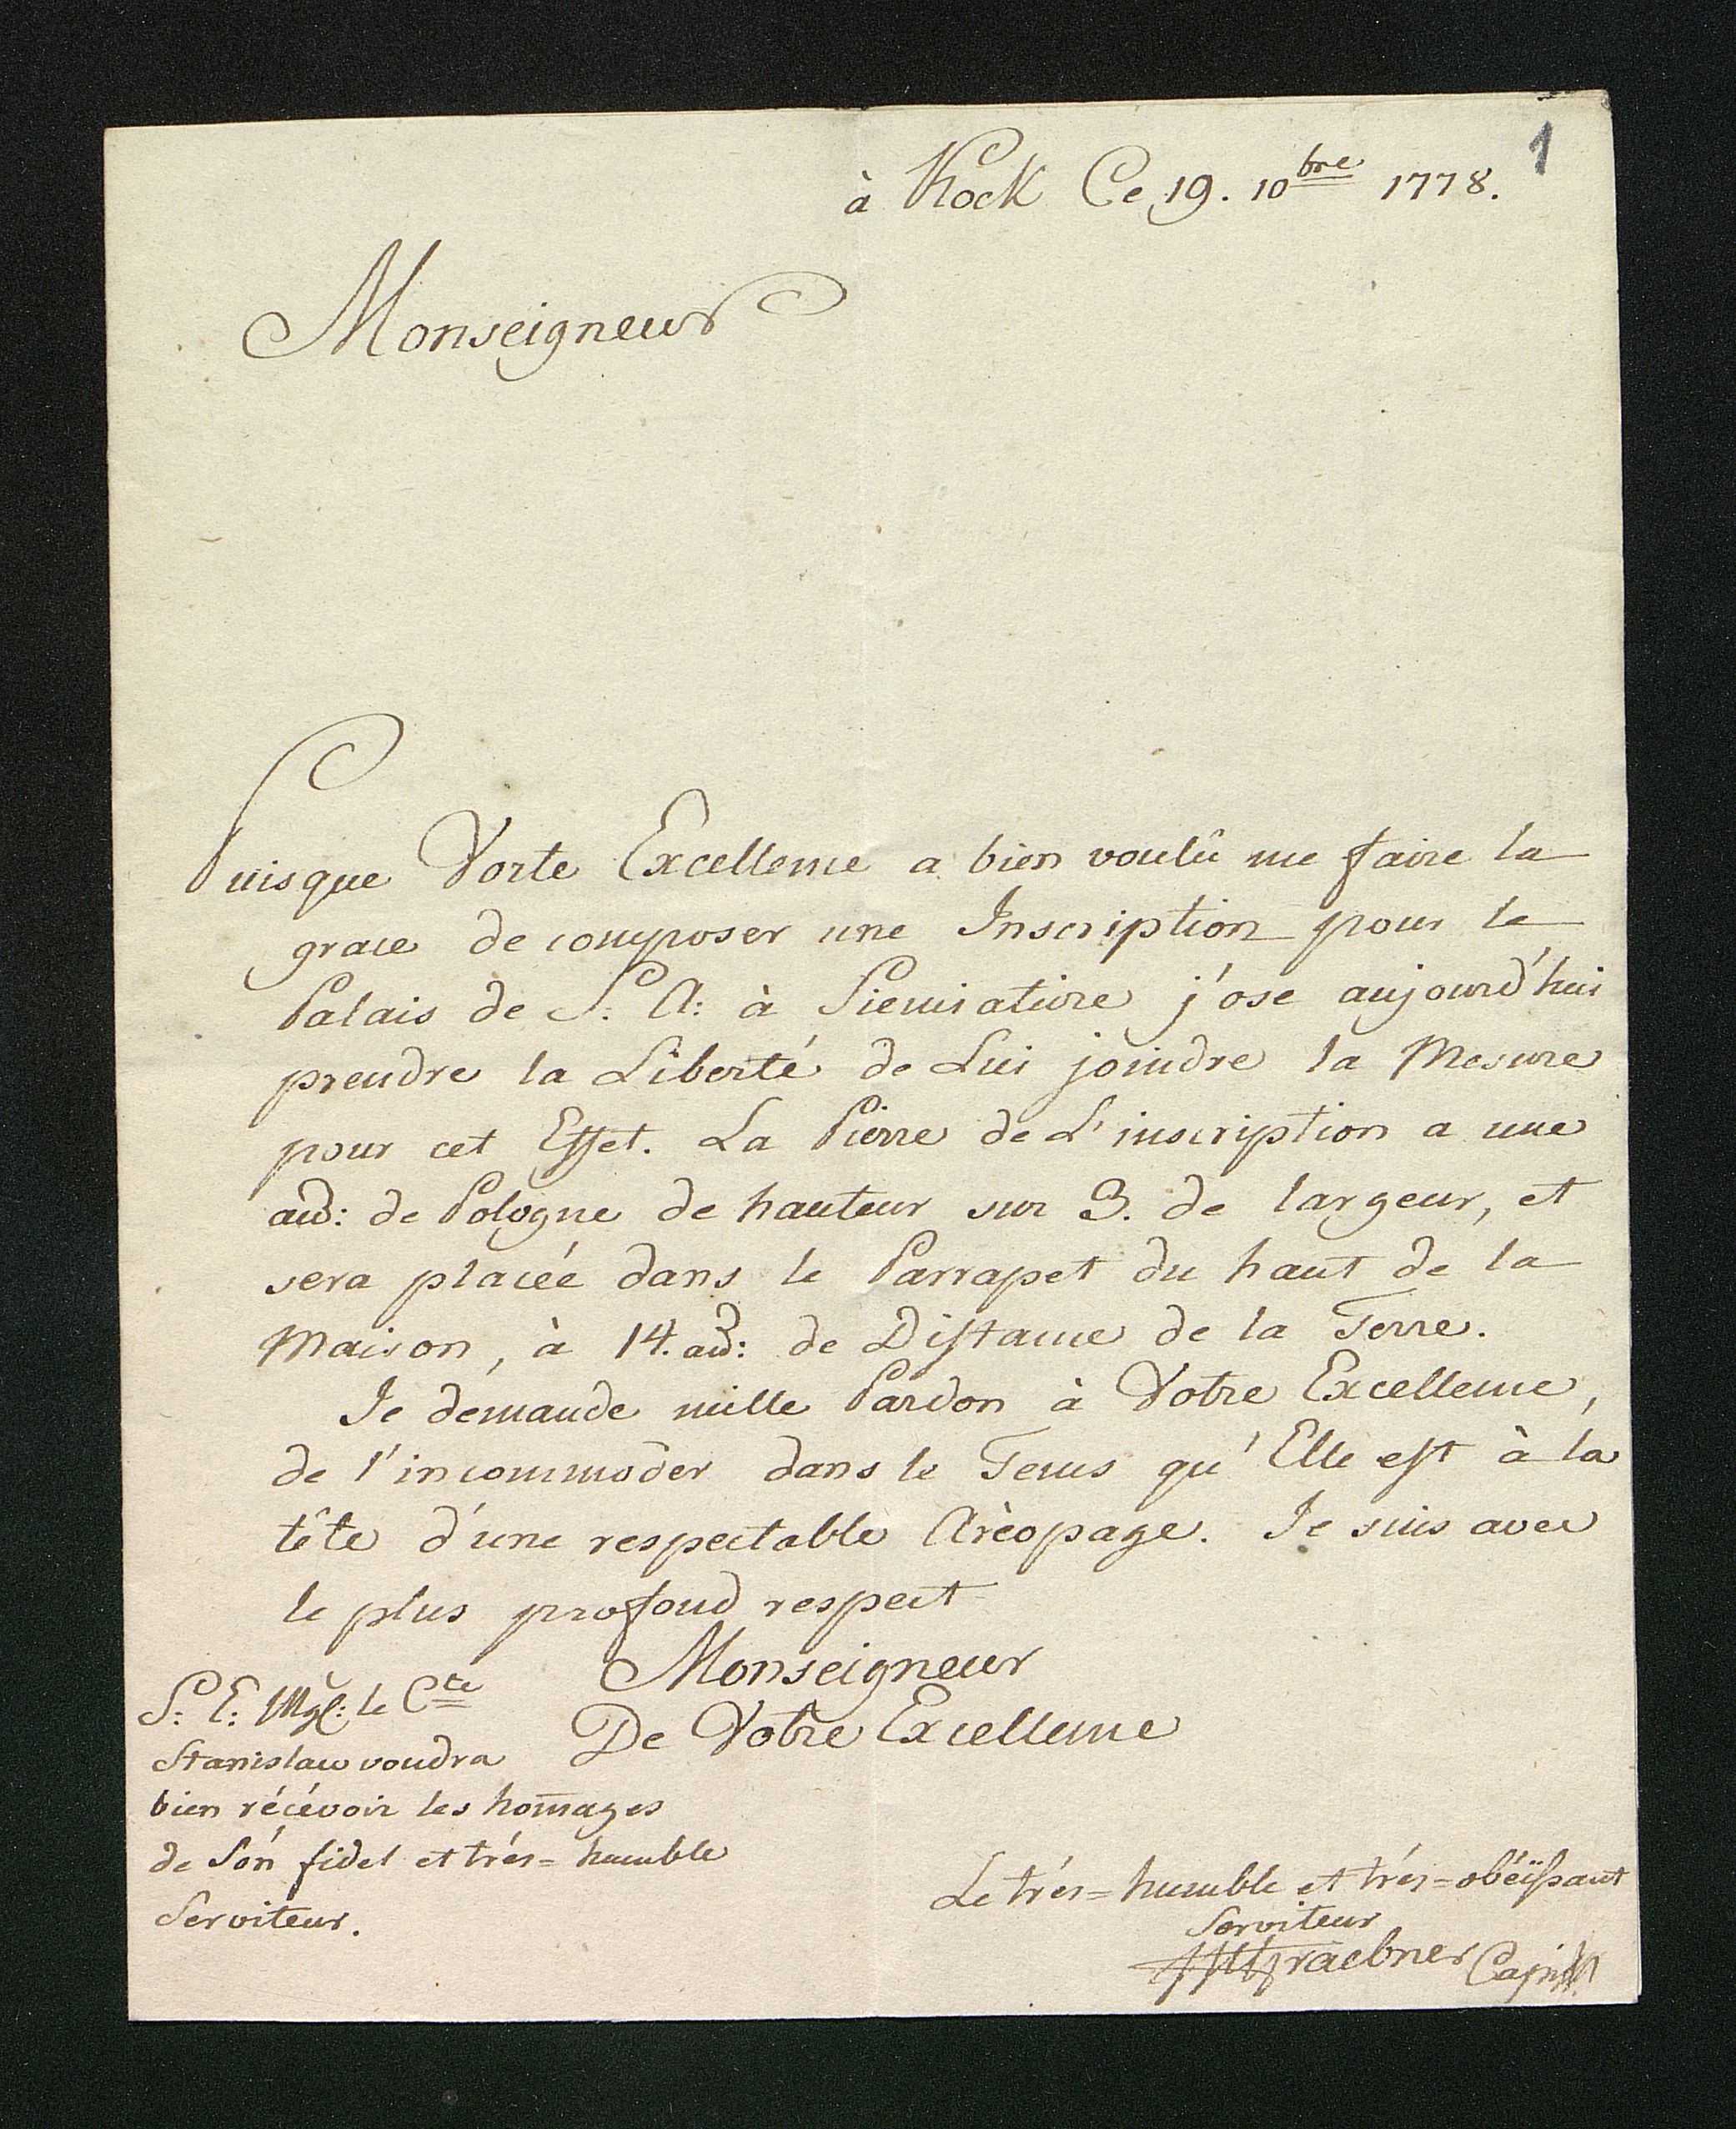 1
à Kock Ce 19. 10bre 1778.
Monseigneur
Puisque Vorte Excellence a bien voulû me faire la
grace de composer une Inscription pour le
Palais de S: A: à j'ose aujourd'hui
prendre la Liberté de Lui joindre la Mesure
pour cet Effet. La Pierre de L'inscription a une
aũ: de Pologne de hauteur sur 3. de largeur, et
sera placée dans le Parrapet du haut de la
Maison, à 14. aũ: de Distance de la Terre.
Je démande mille Pardon à Votre Excellence,
de l'incommoder dans le Tems qu'Elle est à la
tête d'une respectable Arèopage. Je suis avec
le plus profond respect
Monseigneur
De Votre Excellence
S: E: Mgr: le Cte
Stanislaw voudra
bien récévoir les hom̄ages
de Son fidel et trés=humble
Serviteur.
Le trés=humble et trés=obéïssant
Serviteur
Graebner